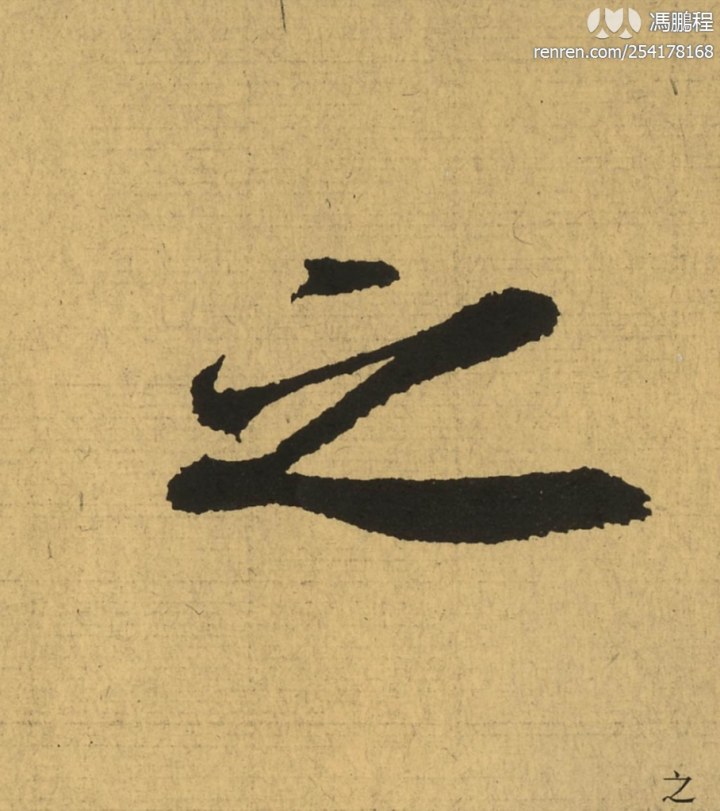 馮鵬程
renren.com/254178168
之
之